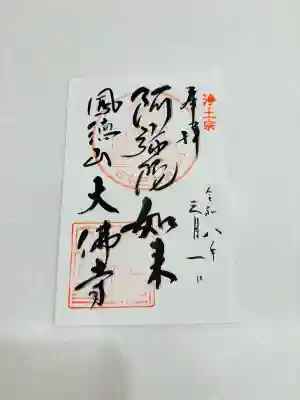 浄土宗
奉拝
令和八年
月一日
阿彌陀如来
鳳徳山
大佛寺